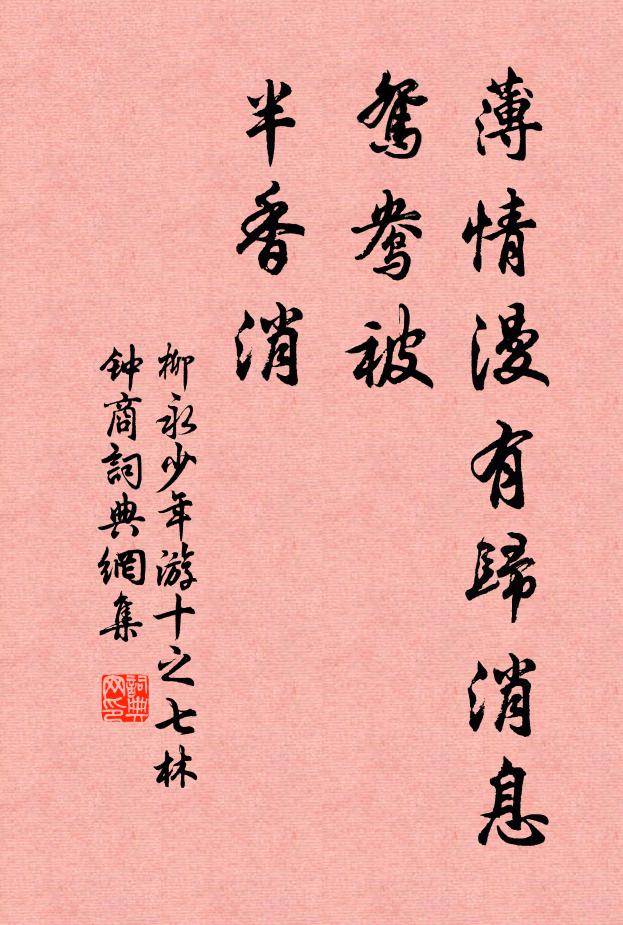 薄情漫有歸消息
鴛鴦被
半香消
柳永少年游十之七林
鈡商詞典網集
詞典
网印